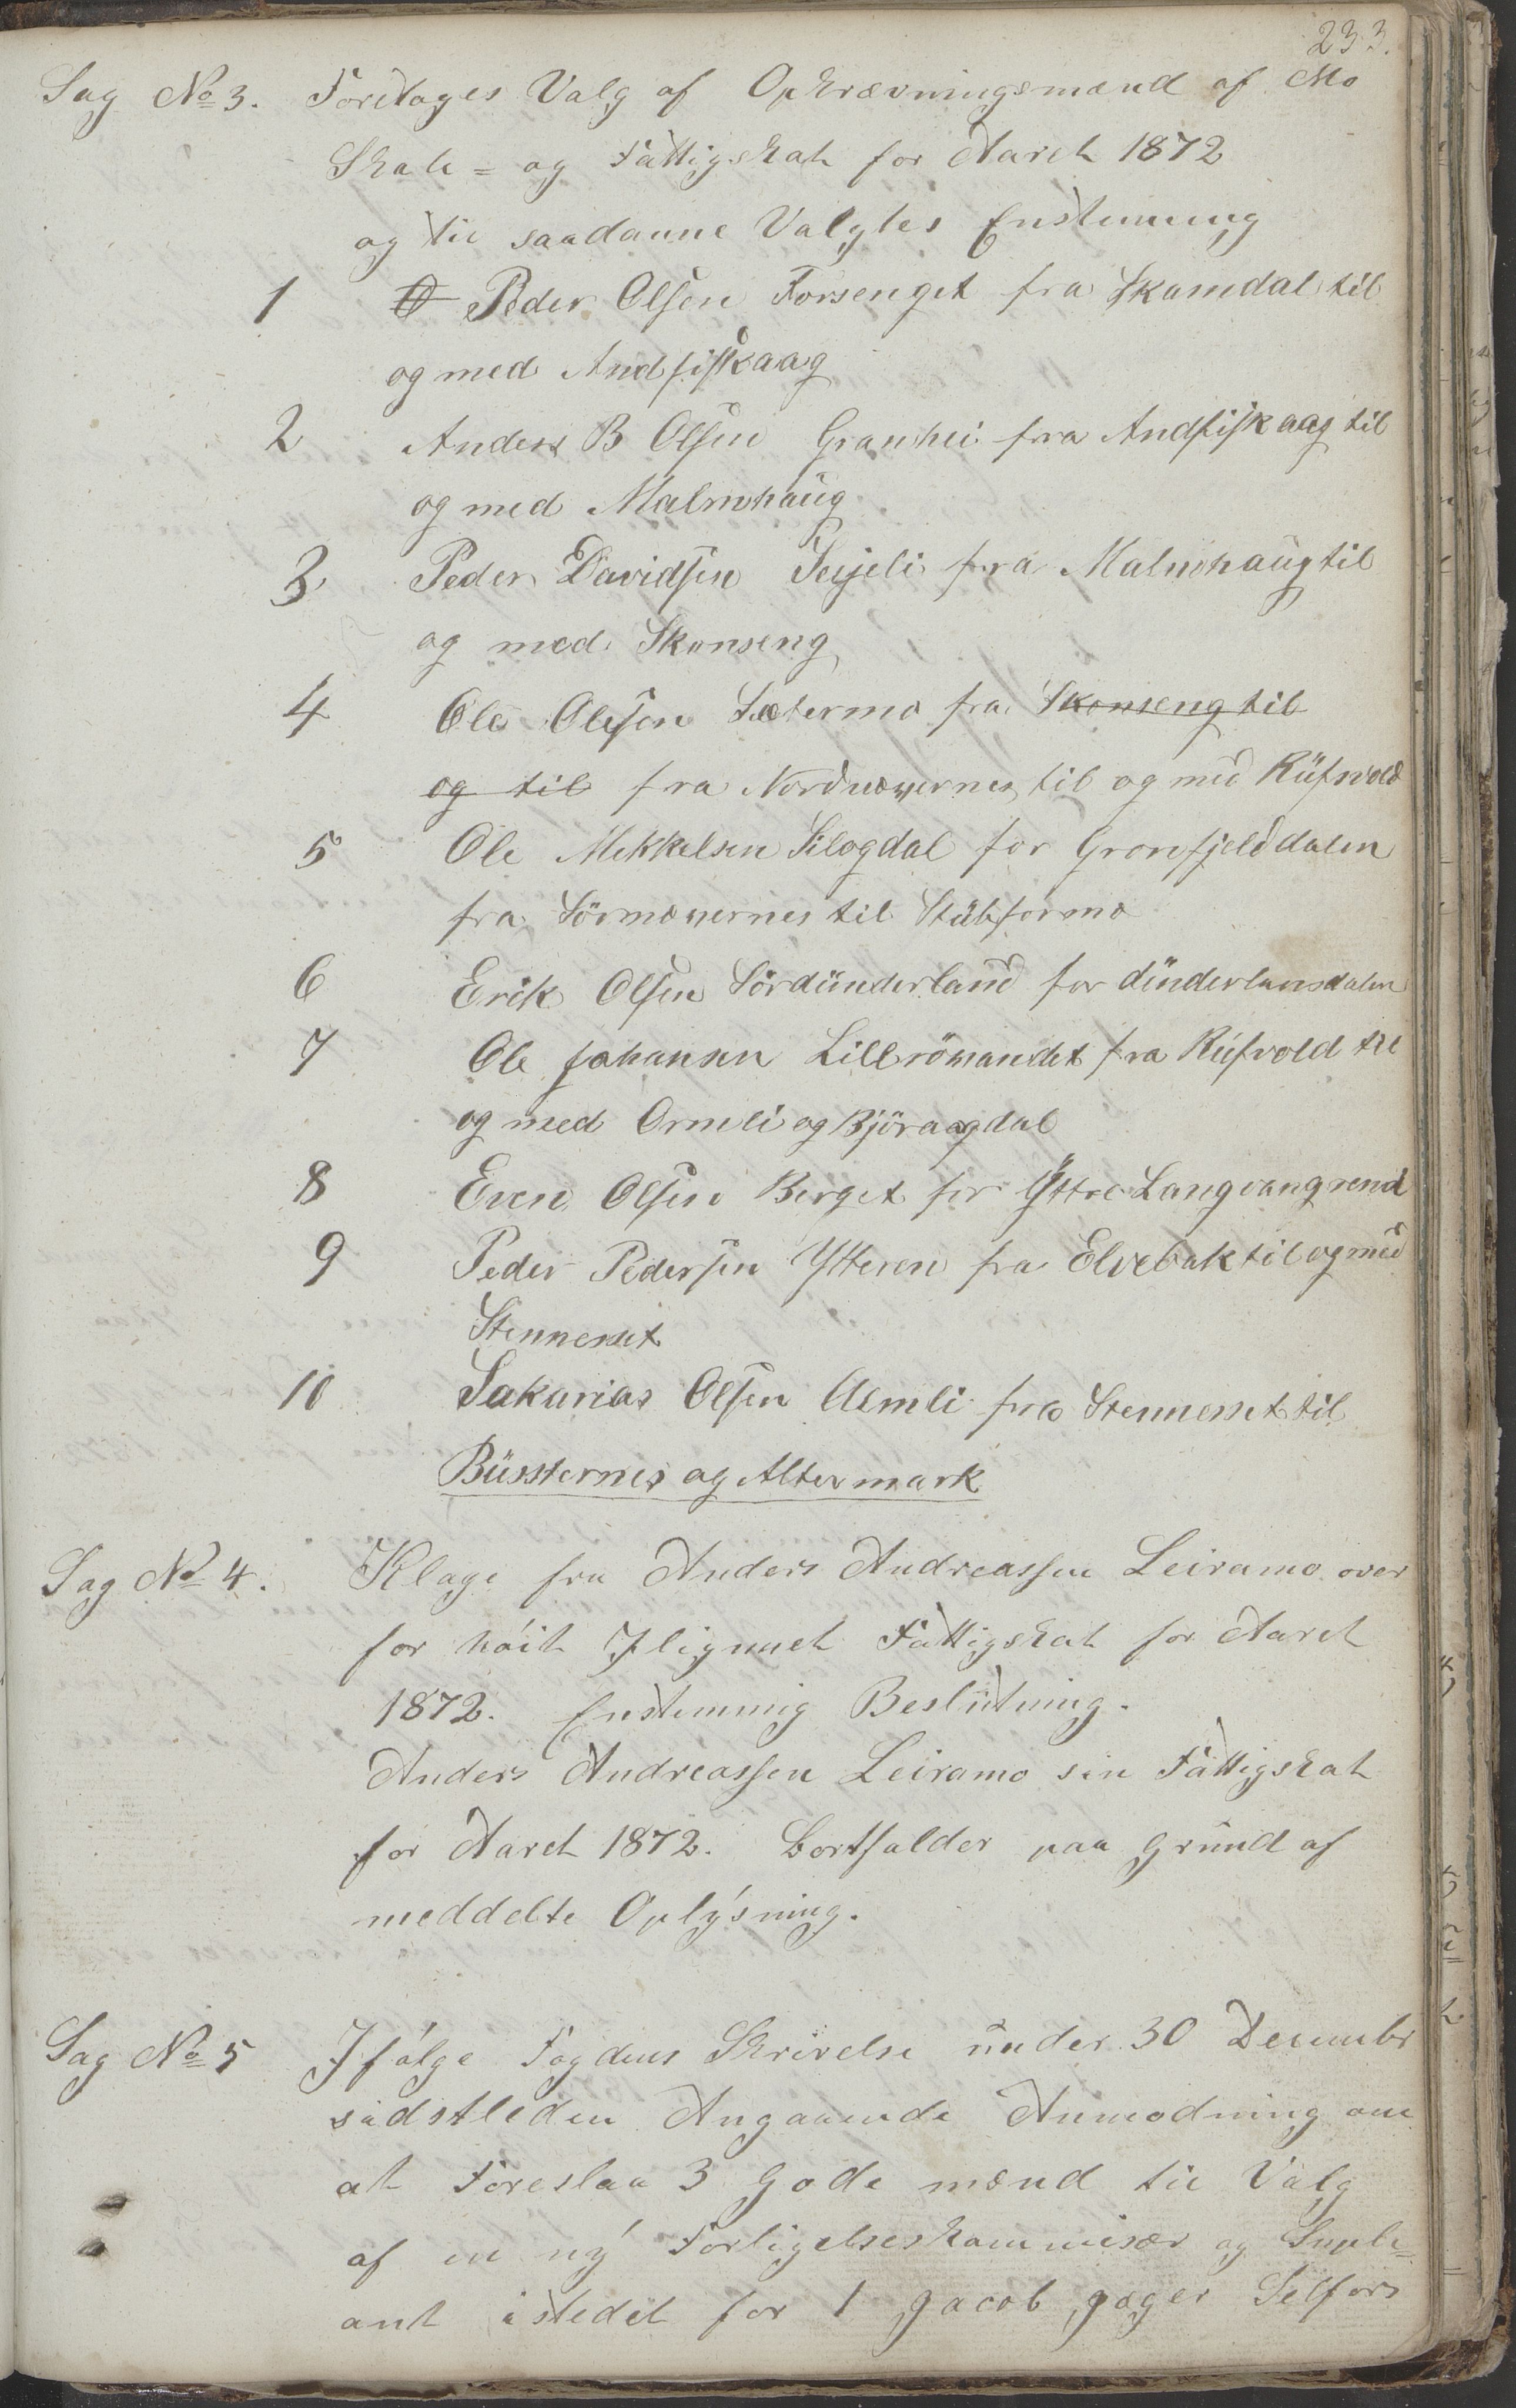 233.
Sag No 3. Foretages Valg af Opkrævningsmænd af Mo
Skole= og Fattigskat for Aaret 1872
og til saadanne Valgtes Enstemmig
1 O Peder Olsen Forsenget fra Skamdal til
og med Andfiskaag
2 Anders B Olsen Granhei fra Andfiskaag til
og med Malmhaug
3 Peder Davidsen Seijeli fra Malmhaug til
og med Skonseng
4 Ole Olesen Sætermo fra Skonseng til
og til fra Nordnæwernes til og med Rüfsvold
5 Ole Mekkelsen Silogdal for Gronfjelddalen
fra Sörnæwernes til Stübformo
6 Erik Olsen Sördünderland for dünderlansdalen
7 Ole Johansen Lillröwandet fra Rüfvold til
og med Ormli og Björaagdal
8 Even Olsen Berget for Yttre Langvangrend
9 Peder Pedersen Ytteren fra Elvebak til og med
Stennesset
10 Sakarias Olsen Almli fra Stennesset til
Büssternes og Altermark
Sag No 4. Klage fra Anders Andreassen Leiramo over
for höit Ilignnet Fattigskat for Aaret
1872. Enstemmig Beslutning.
Anders Andreassen Leiramo sin Fattigskat
for Aaret 1872. bortfalder paa Grund af
meddelte Oplysning.
Sag No 5 Ifölge Fogdens Skrivelse under 30 Decembr
sidstleden Angaaende Anmodning om
at Foreslaa 3 Gode mænd til Valg
af en ny Forligelseskommisær og Suple=
ant istedet for 1 Jacob Jæger Selfors